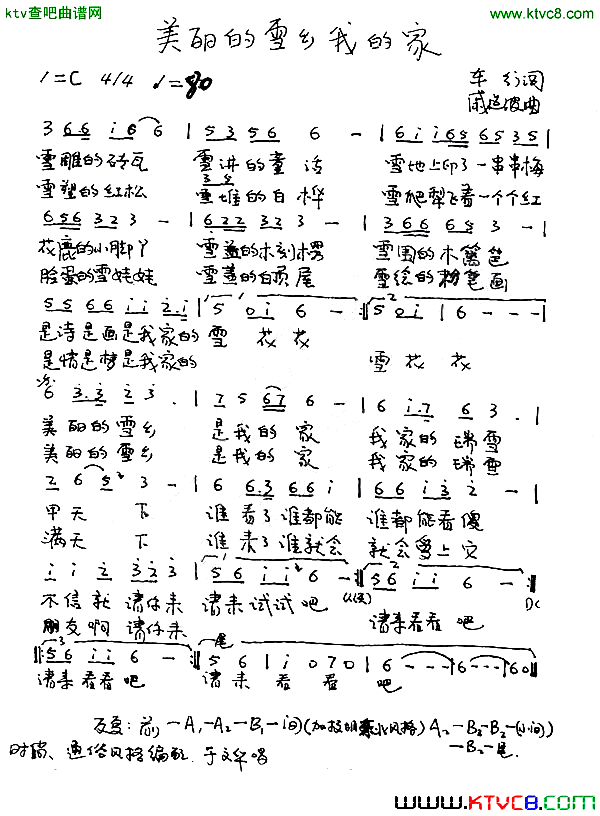 ktv查吧曲谱网
http://www.ktvc8.com
美丽的雪乡我的家
1=C 4/4 ♩=80
车行词
戚建波曲
3 6 6 i 6 6 | 5 3 5 6 6 - | 6 i i 6 5 6 5 3 5 |
雪雕的砖瓦 雪讲的童话 雪地上印了一串串梅
雪塑的红松 雪堆的白桦 雪爬犁飞着一个个红
6 5 6 3 2 3 - | 6 2 2 3 2 3 - | 3 6 6 6 5 3 - |
花鹿的小脚丫 雪盖的木刻楞 雪围的木篱笆
脸蛋的雪娃娃 雪盖的白屋 雪绘的粉笔画
5 5 6 6 i i 2. i | 5 0 i 6 - :| 5 0 i | 6 - - - |
是诗是画是我家的 雪 花 花
是情是梦是我家的 雪 花 花
6 3. 3 2 3 . | 7 5 6 7 6 - | 6 i. 7 6 3 . |
美丽的雪乡 是我的家 我家的瑞雪
美丽的雪乡 是我的家 我家的瑞雪
2 6 5 3 - | 6 6. 3 6 6 i | 6 6 i 3 2 - |
甲天下 谁看了谁都能 谁都能看傻
满天下 谁来了谁就会 就会爱上它
i i 2 3 2 3 | 5 6 i i 6 - :| 5 6 i i 6 - :|
不信就请你来 请来试试吧
D.C
朋友啊请你来 请来看看吧
5 6 i i 6 - :| 尾 5 6 | i 0 7 0 | 6 - - - | 6 - - | 6 0 ||
请来看看吧 请来看看吧
反复：前—A₁—A₂—B₁—间 A₂—B₂—B₂—(小间)
—B₂—尾.
时尚、通俗风格编配. 于文华唱
www.KTVC8.com